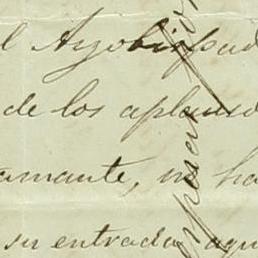 l Arzobispad
de los aplauso
amante, no ha
su entrada aqu